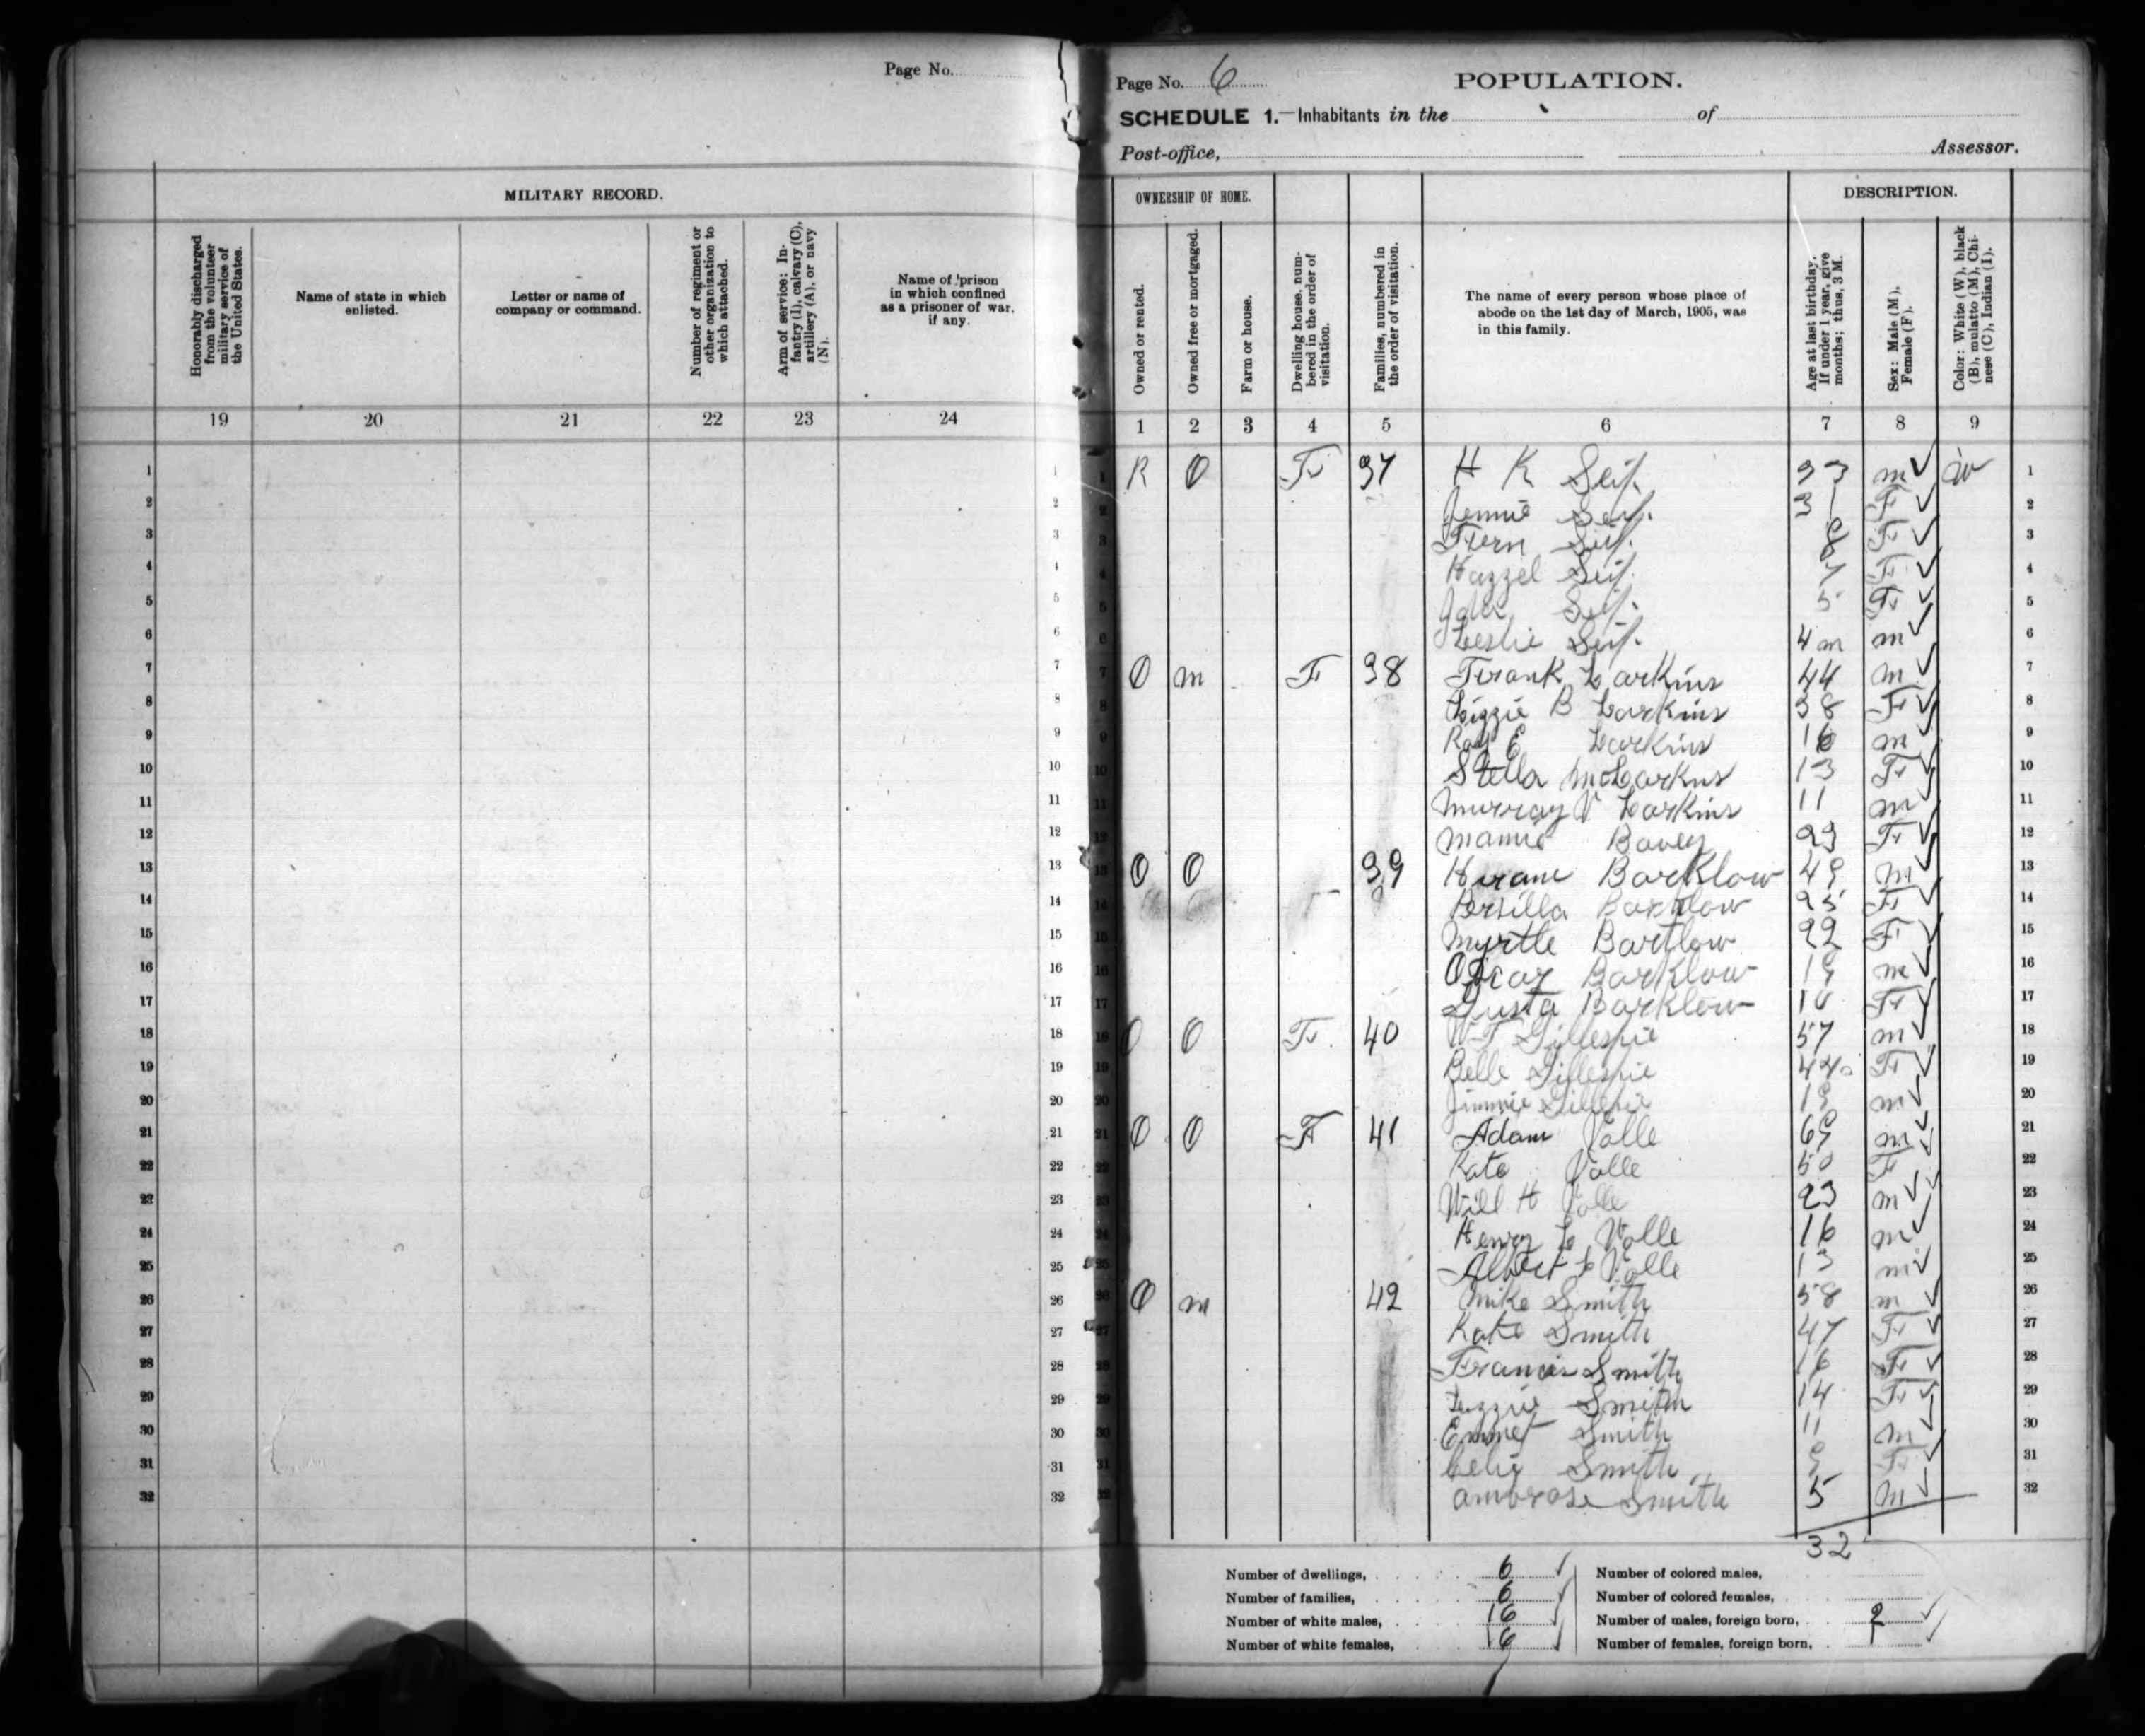 Page No.
MILITARY RECORD.
Honorably discharged from the volunteer military service of the United States.
Name of state in which enlisted.
Letter or name of company or command.
Number of regiment or other organization to which attached.
Arm of service: Infantry (I), calvary (C), artillery (A), or navy (N).
Name of prison in which confined as a prisoner of war, if any.
19 20 21 22 23 24
Page No. 6 POPULATION.
SCHEDULE 1.—Inhabitants in the of
Post-office, Assessor.
OWNERSHIP OF HOME. DESCRIPTION.
Owned or rented.
Owned free or mortgaged.
Farm or house.
Dwelling house, numbered in the order of visitation.
Families, numbered in the order of visitation.
The name of every person whose place of abode on the 1st day of March, 1905, was in this family.
Age at last birthday. If under 1 year, give months; thus, 3 M.
Sex: Male (M), Female (F).
Color: White (W), black (B), mulatto (M), Chinese (C), Indian (I).
1 2 3 4 5 6 7 8 9
1 R O F 37 H K m W 1
2 Jennie 31 F 2
3 Fern F 3
4 Hazzel 7 F 4
5 5 F 5
6 Leslie 4 m m 6
7 O m F 38 Frank Larkins 44 m 7
8 Lizzie B Larkins 38 F 8
9 Ray E Larkins 16 m 9
10 Stella M Larkins 13 F 10
11 Murray V Larkins 11 m 11
12 Mamie 23 F 12
13 O O 39 Hiram Barklow 49 m 13
14 Barklow F 14
15 Myrtle Bartlow 22 F 15
16 Oscar Barklow 19 m 16
17 Gusta Barklow F 17
18 O O F 40 W T Gillespie 57 m 18
19 Belle Gillespie F 19
20 Jimmie Gillespie m 20
21 O O F 41 Adam Valle m 21
22 Kate Valle 50 F 22
23 Will H Valle 23 m 23
24 Henry L Valle 16 m 24
25 Albert L Valle 13 m 25
26 O m 42 Mike Smith 58 m 26
27 Kate Smith 47 F 27
28 Francis Smith 16 F 28
29 Smith 14 F 29
30 Emmet Smith 11 m 30
31 Celie Smith F 31
32 Ambrose Smith 5 m 32
32
Number of dwellings, 6 Number of colored males,
Number of families, 6 Number of colored females,
Number of white males, 16 Number of males, foreign born, 2
Number of white females, 16 Number of females, foreign born, 1